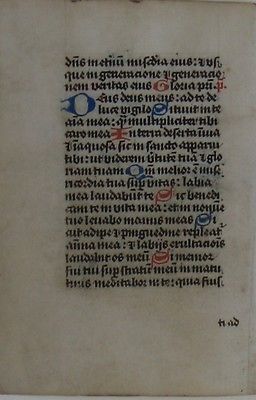 dn̄s in etnū miscdia eius: ⁊ vsq
que in generacione ⁊ generacio
nem veritas eius Gloria pr̄i. p̄.
Deus deus meus: ad te de
luce vigilo Sitiuit in te
aīa mea: qm̄ multipliciter tibi
caro mea In terra deserta īuia
⁊ inaquosa sic in sancto apparui
tibi: ut viderem v̄tutē tuā ⁊ glo
riam tuam Qm̄ melior ē mise
ricordia tua sup vitas: labia
mea laudabūt te Sic benedi
cam te in vita mea: et in noīe
tuo leuabo manus meas Si
cut adipe ⁊ pinguedine repleat̄
anīma mea: ⁊ labijs exultacōis
laudabit os meū Si memor
fui tui sup stratū meū in matu
tinis meditabor in te: quia fuis
ti ad